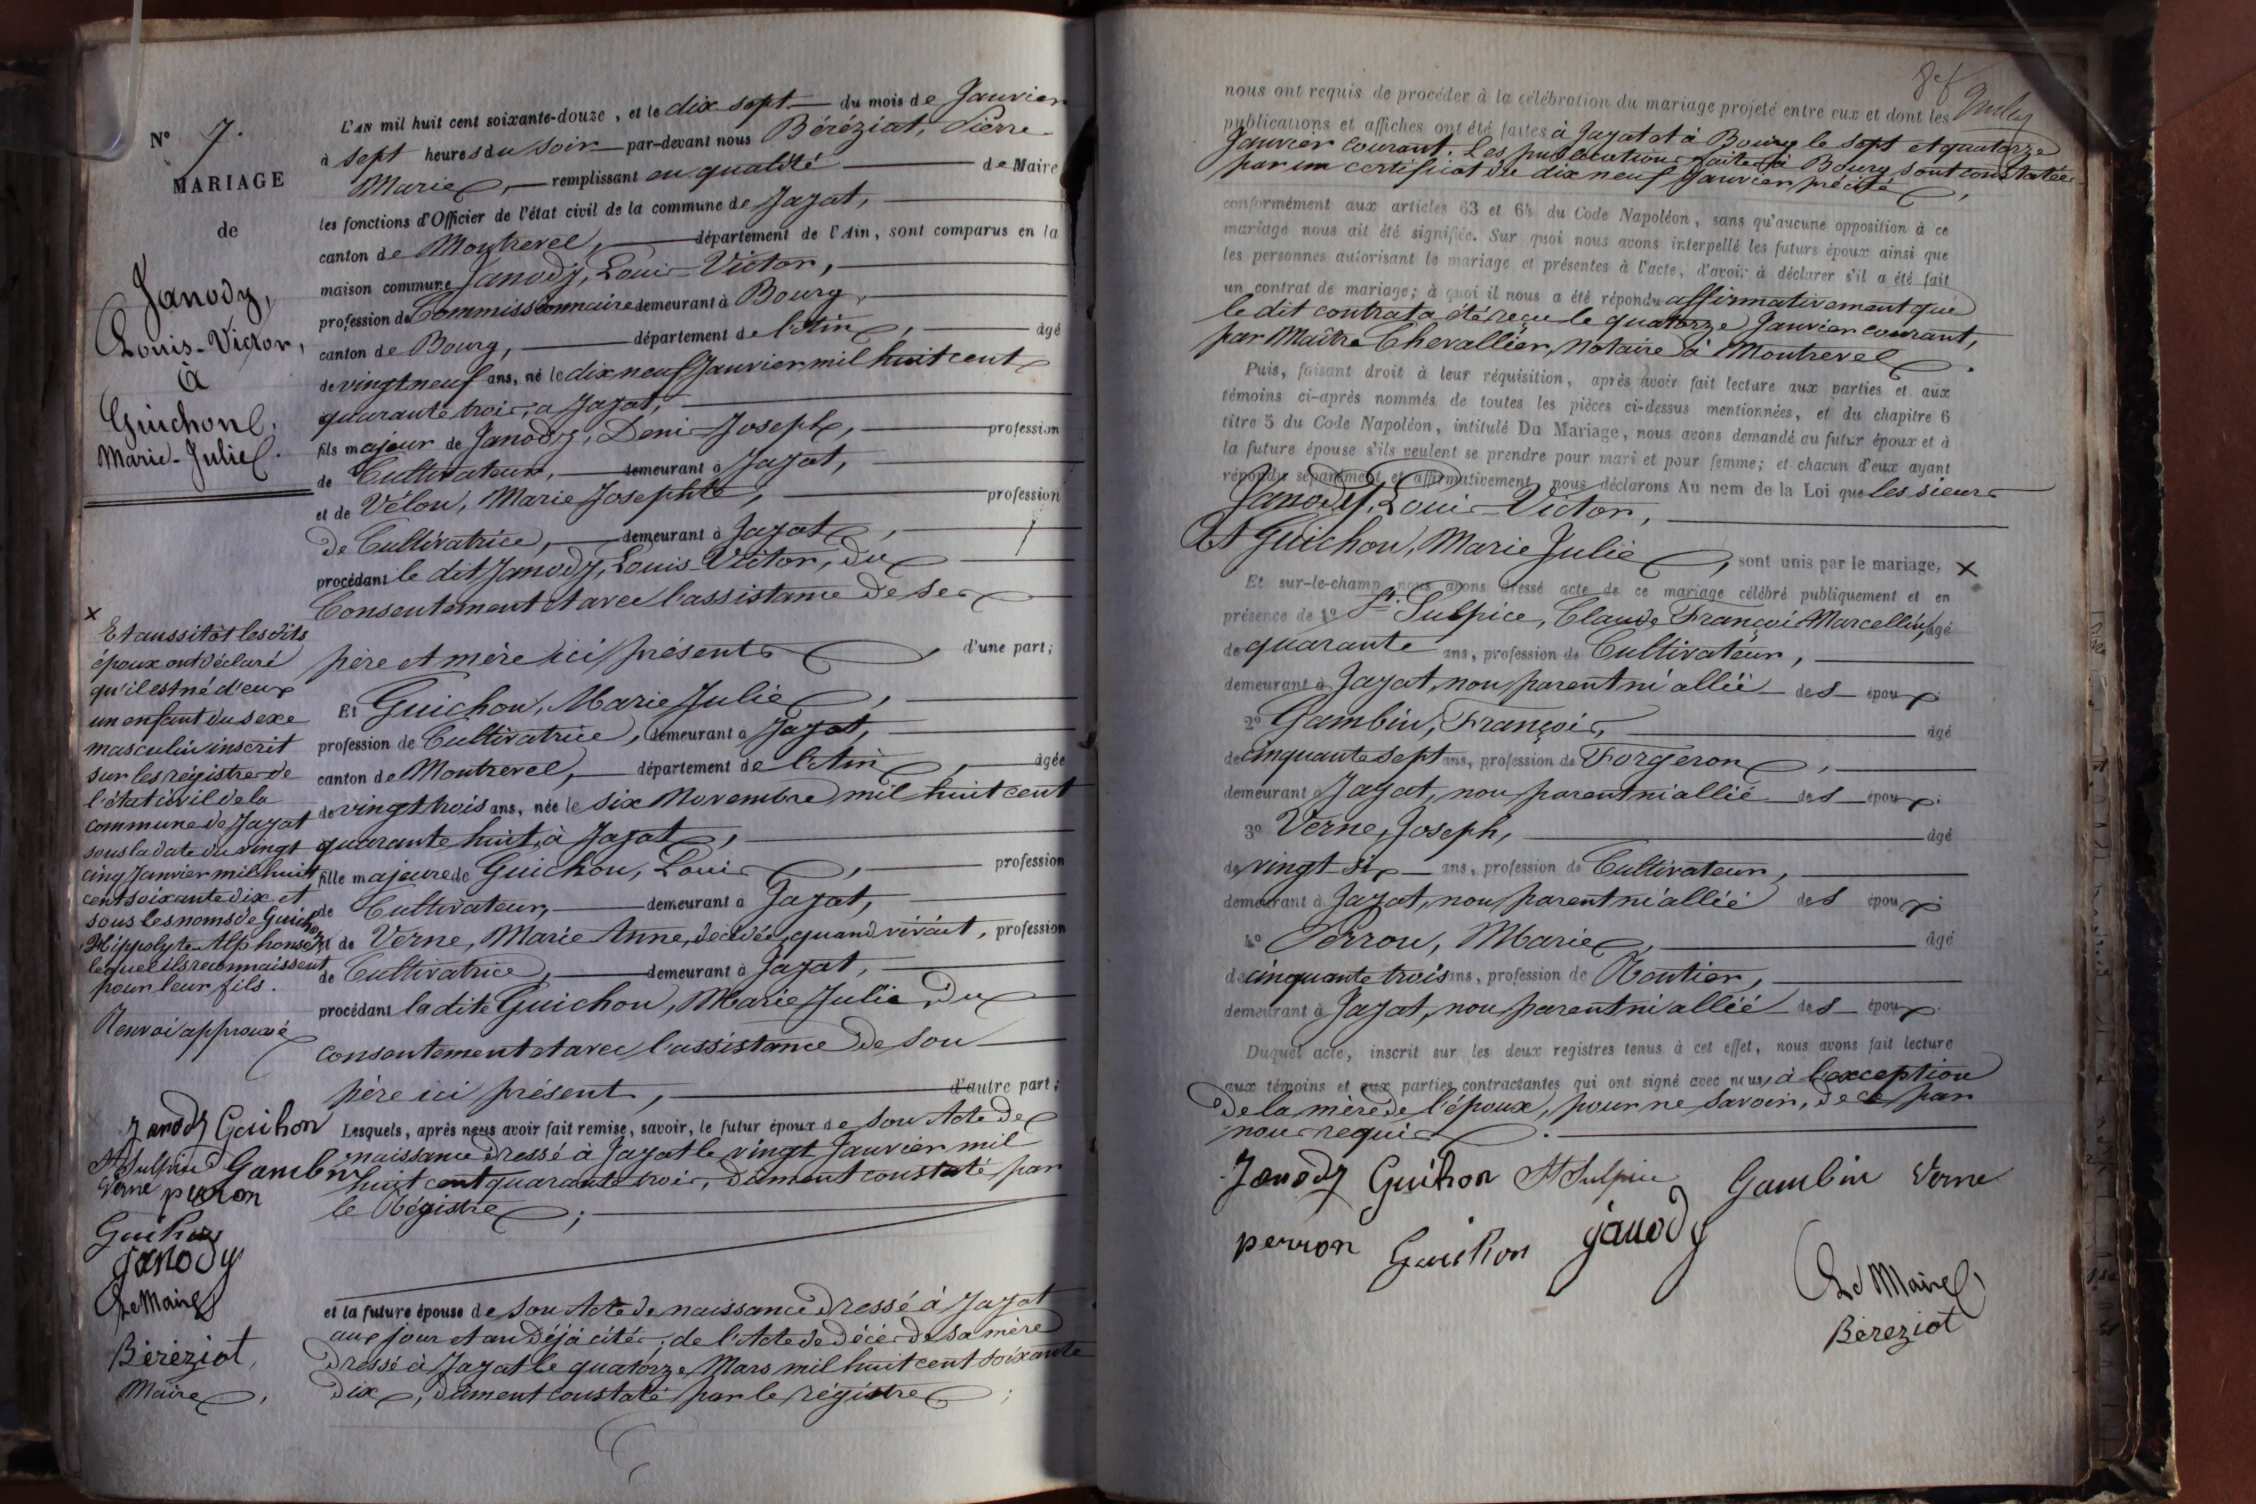 N° 7.
MARIAGE
de
Janody,
Louis-Victor,
à
Guichon,
Marie-Julie.
L'AN mil huit cent soixante-douze, et le dix sept du mois de Janvier
à sept heures du soir par-devant nous Béréziat, Pierre
Marie, remplissant en qualité de Maire
les fonctions d'Officier de l'état civil de la commune de Jayat,
canton de Montrevel, département de l'Ain, sont comparus en la
maison commune Janody, Louis-Victor,
profession de Commissionnaire demeurant à Bourg,
canton de Bourg, département de l'Ain, âgé
de vingt neuf ans, né le dix neuf Janvier mil huit cent
quarante trois, à Jayat,
fils majeur de Janody, Denis-Joseph, profession
de Cultivateur, demeurant à Jayat,
et de Vélon, Marie Josephte, profession
de Cultivatrice, demeurant à Jayat,
procédant le dit Janody, Louis-Victor, du
Consentement et avec l'assistance de ses
père et mère ici présents, d'une part;
Et Guichon, Marie Julie,
profession de Cultivatrice, demeurant à Jayat,
canton de Montrevel, département de l'Ain, âgée
de vingt trois ans, née le six Novembre mil huit cent
quarante huit, à Jayat,
fille majeure de Guichon, Louis, profession
de Cultivateur, demeurant à Jayat,
et de Verne, Marie Anne, décédée, quand vivait, profession
de Cultivatrice, demeurant à Jayat,
procédant la dite Guichon, Marie Julie, du
consentement et avec l'assistance de son
père ici présent, d'autre part;
Lesquels, après nous avoir fait remise, savoir, le futur époux de son Acte de
naissance dressé à Jayat le vingt Janvier mil
huit cent quarante trois, dûment constaté par
le Régistre;
et la future épouse de son Acte de naissance dressé à Jayat
aux jour et an déjà cités; de l'Acte de décès de sa mère
dressé à Jayat le quatorze Mars mil huit cent soixante
dix, dûment constaté par le régistre;
x
Et aussitôt les dits
époux ont déclaré
qu'il est né d'eux
un enfant du sexe
masculin inscrit
sur les régistres de
l'état civil de la
commune de Jayat
sous la date du vingt
cinq Janvier mil huit
cent soixante dix et
sous les noms de Guichon
Hippolyte Alphonse
lequel ils reconnaissent
pour leur fils.
Renvoi approuvé
Janody Guihon
St Sulpice Gambin
Verne perron
Guihon
janody
Le Maire
Béréziat,
Maire,
nous ont requis de procéder à la célébration du mariage projeté entre eux et dont les
publications et affiches ont été faites à Jayat et à Bourg le sept et quatorze
Janvier courant. Les publications faites à Bourg sont constatées
par un certificat du dix neuf Janvier précité,
conformément aux articles 63 et 64 du Code Napoléon, sans qu'aucune opposition à ce
mariage nous ait été signifiée. Sur quoi nous avons interpellé les futurs époux ainsi que
les personnes autorisant le mariage et présentes à l'acte, d'avoir à déclarer s'il a été fait
un contrat de mariage; à quoi il nous a été répondu affirmativement que
le dit contrat a été reçu le quatorze Janvier courant,
par Maître Chevallier, Notaire à Montrevel.
Puis, faisant droit à leur réquisition, après avoir fait lecture aux parties et aux
témoins ci-après nommés de toutes les pièces ci-dessus mentionnées, et du chapitre 6
titre 5 du Code Napoléon, intitulé Du Mariage, nous avons demandé au futur époux et à
la future épouse s'ils veulent se prendre pour mari et pour femme; et chacun d'eux ayant
répondu séparément et affirmativement, nous déclarons Au nom de la Loi que les sieurs
Janody, Louis-Victor,
Et Guichon, Marie Julie, sont unis par le mariage, x
Et sur-le-champ nous avons dressé acte de ce mariage célébré publiquement et en
présence de 1° St. Sulpice, Claude François Marcellin, âgé
de quarante ans, profession de Cultivateur,
demeurant à Jayat, non parent ni allié des époux.
2° Gambin, François, âgé
de cinquante sept ans, profession de Forgeron,
demeurant à Jayat, non parent ni allié des époux.
3° Verne, Joseph, âgé
de vingt six ans, profession de Cultivateur,
demeurant à Jayat, non parent ni allié des époux.
4° Perron, Marie, âgé
de cinquante trois ans, profession de Rentier,
demeurant à Jayat, non parent ni allié des époux.
Duquel acte, inscrit sur les deux registres tenus à cet effet, nous avons fait lecture
aux témoins et aux parties contractantes qui ont signé avec nous, à l'exception
de la mère de l'époux, pour ne savoir, de ce par
nous requis.
Janody Guihon St Sulpice Gambin Verne
perron Guihon janody
Le Maire,
Béréziat